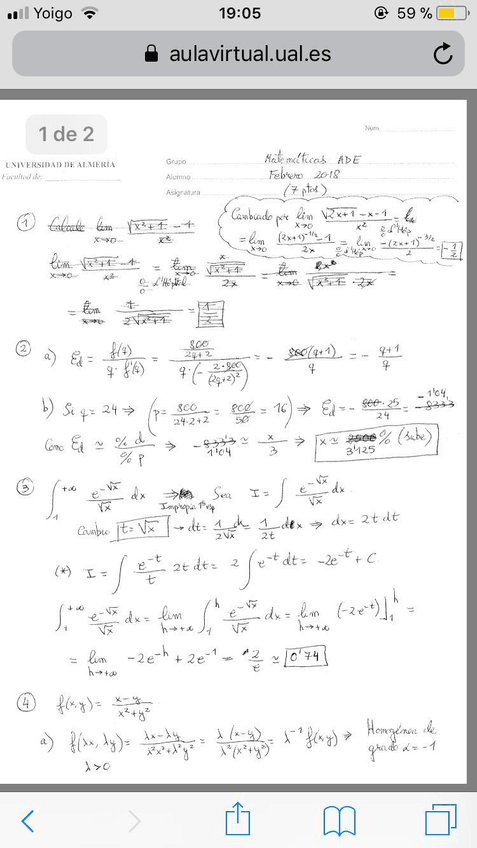 Yoigo 19:05 59 %
aulavirtual.ual.es
1 de 2
Núm.
UNIVERSIDAD DE ALMERÍA
Facultad de:
Grupo Matemáticas ADE
Alumno Febrero 2018
Asignatura (7 ptos)
① Calcule lim x→0 (√(x²+1) - 1)/x²
Cambiado por lim x→0 (√(2x+1) - x - 1)/x² =
= lim x→0 ((2x+1)^(-1/2) - 1)/2x = lim x→0 (-(2x+1)^(-3/2))/2 = -1/2
lim x→0 (√(x²+1) - 1)/x² = 0/0 L'Hôpital lim x→0 (x/√(x²+1))/2x = lim x→0
= lim x→0 1/(2√(x²+1)) = 1/2
② a) Ed = f(q)/(q · f'(q)) = (800/(2q+2))/(q·(-2·800/(2q+2)²)) = - 800(q+1)/q = - (q+1)/q
b) Si q = 24 → (p = 800/(24·2+2) = 800/50 = 16) ⇒ Ed = - 800·25/24 = -8333 -1'04
Como Ed ≃ % d/% p ⇒ -8333 1'04 ≃ x/3 ⇒ x ≃ 2500 3'125 % (sube)
③ ∫₁^+∞ e^(-√x)/√x dx ⇒ Impropia 1ª esp Sea I = ∫ e^(-√x)/√x dx.
Cambio t = √x → dt = 1/(2√x) dx = 1/2t dx ⇒ dx = 2t dt
(*) I = ∫ e^(-t)/t 2t dt = 2 ∫ e^(-t) dt = -2e^(-t) + C
∫₁^+∞ e^(-√x)/√x dx = lim h→+∞ ∫₁^h e^(-√x)/√x dx = lim h→+∞ (-2e^(-t)]₁^h =
= lim h→+∞ -2e^(-h) + 2e^(-1) = 2/e ≃ 0'74
④ f(x,y) = (x-y)/(x²+y²)
a) f(λx, λy) = (λx-λy)/(λ²x²+λ²y²) = λ(x-y)/(λ²(x²+y²)) = λ^(-1) f(x,y) ⇒ Homogénea de
λ>0 grado α = -1